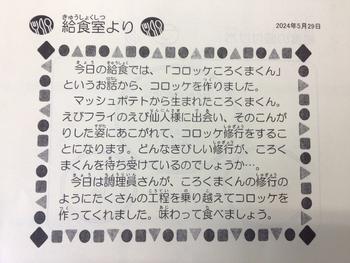 きゅうしょくしつ
給食室より
2024年5月29日
今日の給食では、「コロッケころくまくん」
というお話から、コロッケを作りました。
マッシュポテトから生まれたころくまくん。
えびフライのえび仙人様に出会い、そのこんが
りした姿にあこがれて、コロッケ修行をする
ことになります。どんなきびしい修行が、ころ
くまくんを待ち受けているのでしょうか…。
今日は調理員さんが、ころくまくんの修行の
ようにたくさんの工程を乗り越えてコロッケを
作ってくれました。味わって食べましょう。